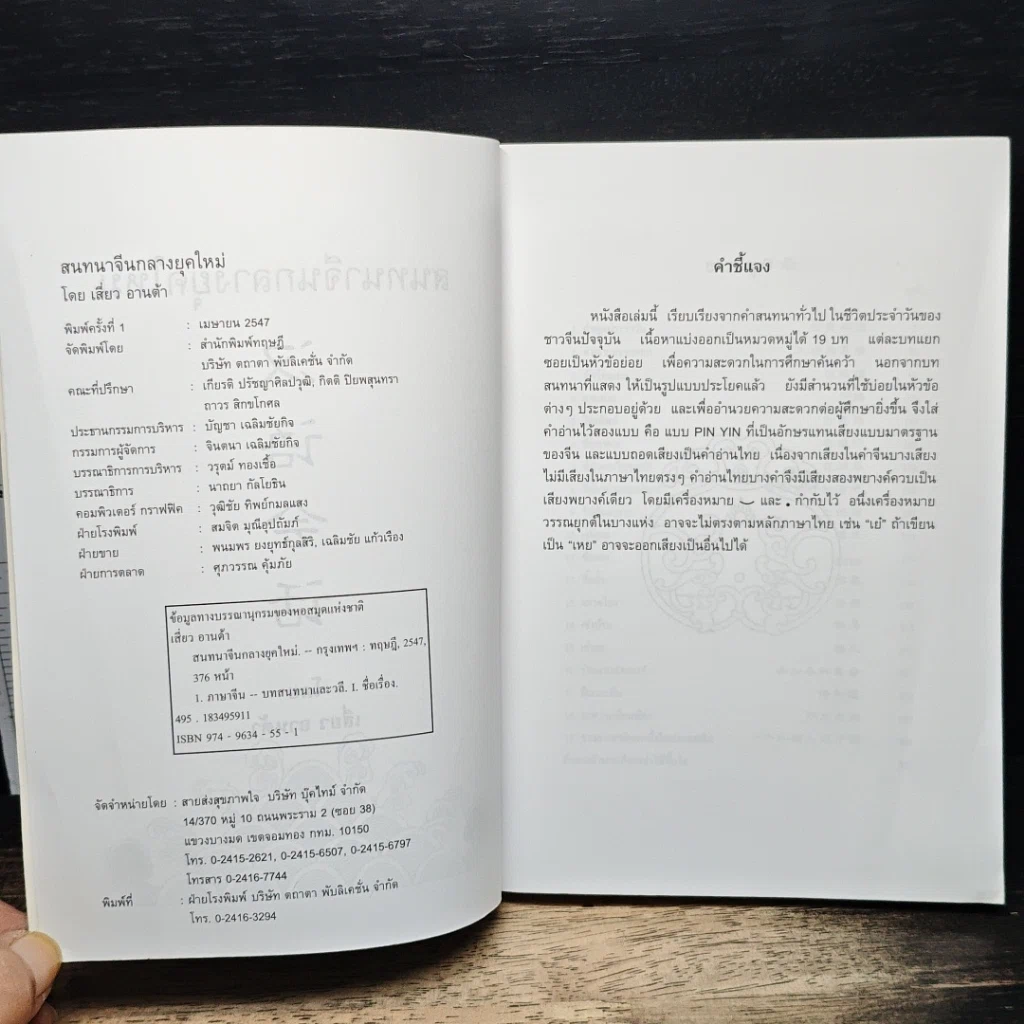 สนทนาจีนกลางยุคใหม่
โดย เสี่ยว อานต้า
พิมพ์ครั้งที่ 1 : เมษายน 2547
จัดพิมพ์โดย : สำนักพิมพ์ทฤษฎี
บริษัท ตถาตา พับลิเคชั่น จำกัด
คณะที่ปรึกษา : เกียรติ ปรัชญาศิลปวุฒิ, กิตติ ปิยพสุนทรา
ถาวร สิกขโกศล
ประธานกรรมการบริหาร : บัญชา เฉลิมชัยกิจ
กรรมการผู้จัดการ : จินตนา เฉลิมชัยกิจ
บรรณาธิการการบริหาร : วรุตม์ ทองเชื้อ
บรรณาธิการ : นาถยา กัลโยธิน
คอมพิวเตอร์ กราฟฟิค : วุฒิชัย ทิพย์กมลแสง
ฝ่ายโรงพิมพ์ : สมจิต มุณีอุปถัมภ์
ฝ่ายขาย : พนมพร ยงยุทธ์กุลสิริ, เฉลิมชัย แก้วเรือง
ฝ่ายการตลาด : ศุภวรรณ คุ้มภัย
ข้อมูลทางบรรณานุกรมของหอสมุดแห่งชาติ
เสี่ยว อานต้า
สนทนาจีนกลางยุคใหม่. -- กรุงเทพฯ : ทฤษฎี, 2547,
376 หน้า
1. ภาษาจีน -- บทสนทนาและวลี. I. ชื่อเรื่อง.
495 . 183495911
ISBN 974 - 9634 - 55 - 1
จัดจำหน่ายโดย : สายส่งสุขภาพใจ บริษัท บุ๊คไทม์ จำกัด
14/370 หมู่ 10 ถนนพระราม 2 (ซอย 38)
แขวงบางมด เขตจอมทอง กทม. 10150
โทร. 0-2415-2621, 0-2415-6507, 0-2415-6797
โทรสาร 0-2416-7744
พิมพ์ที่ : ฝ่ายโรงพิมพ์ บริษัท ตถาตา พับลิเคชั่น จำกัด
โทร. 0-2416-3294
คำชี้แจง
หนังสือเล่มนี้ เรียบเรียงจากคำสนทนาทั่วไป ในชีวิตประจำวันของ
ชาวจีนปัจจุบัน เนื้อหาแบ่งออกเป็นหมวดหมู่ได้ 19 บท แต่ละบทแยก
ซอยเป็นหัวข้อย่อย เพื่อความสะดวกในการศึกษาค้นคว้า นอกจากบท
สนทนาที่แสดง ให้เป็นรูปแบบประโยคแล้ว ยังมีสำนวนที่ใช้บ่อยในหัวข้อ
ต่างๆ ประกอบอยู่ด้วย และเพื่ออำนวยความสะดวกต่อผู้ศึกษายิ่งขึ้น จึงใส่
คำอ่านไว้สองแบบ คือ แบบ PIN YIN ที่เป็นอักษรแทนเสียงแบบมาตรฐาน
ของจีน และแบบถอดเสียงเป็นคำอ่านไทย เนื่องจากเสียงในคำจีนบางเสียง
ไม่มีเสียงในภาษาไทยตรงๆ คำอ่านไทยบางคำจึงมีเสียงสองพยางค์ควบเป็น
เสียงพยางค์เดียว โดยมีเครื่องหมาย ‿ และ . กำกับไว้ อนึ่งเครื่องหมาย
วรรณยุกต์ในบางแห่ง อาจจะไม่ตรงตามหลักภาษาไทย เช่น “เย๋” ถ้าเขียน
เป็น “เหย” อาจจะออกเสียงเป็นอื่นไปได้